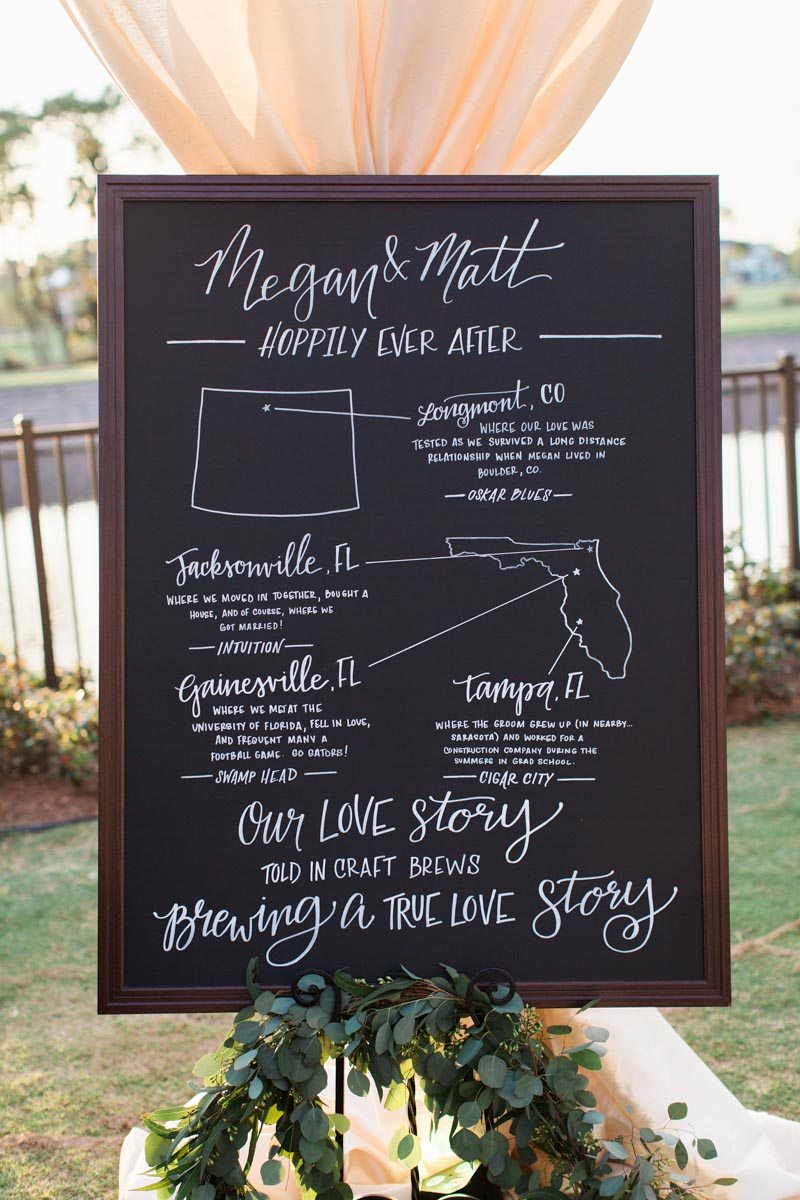 Megan & Matt
HOPPILY EVER AFTER
Longmont, CO
WHERE OUR LOVE WAS
TESTED AS WE SURVIVED A LONG DISTANCE
RELATIONSHIP WHEN MEGAN LIVED IN
BOULDER, CO.
OSKAR BLUES
Jacksonville, FL
WHERE WE MOVED IN TOGETHER, BOUGHT A
HOUSE, AND OF COURSE, WHERE WE
GOT MARRIED!
INTUITION
Gainesville, FL
WHERE WE MET AT THE
UNIVERSITY OF FLORIDA, FELL IN LOVE,
AND FREQUENT MANY A
FOOTBALL GAME. GO GATORS!
SWAMP HEAD
Tampa, FL
WHERE THE GROOM GREW UP (IN NEARBY...
SARASOTA) AND WORKED FOR A
CONSTRUCTION COMPANY DURING THE
SUMMERS IN GRAD SCHOOL.
CIGAR CITY
Our LOVE Story
TOLD IN CRAFT BREWS
Brewing a TRUE LOVE Story